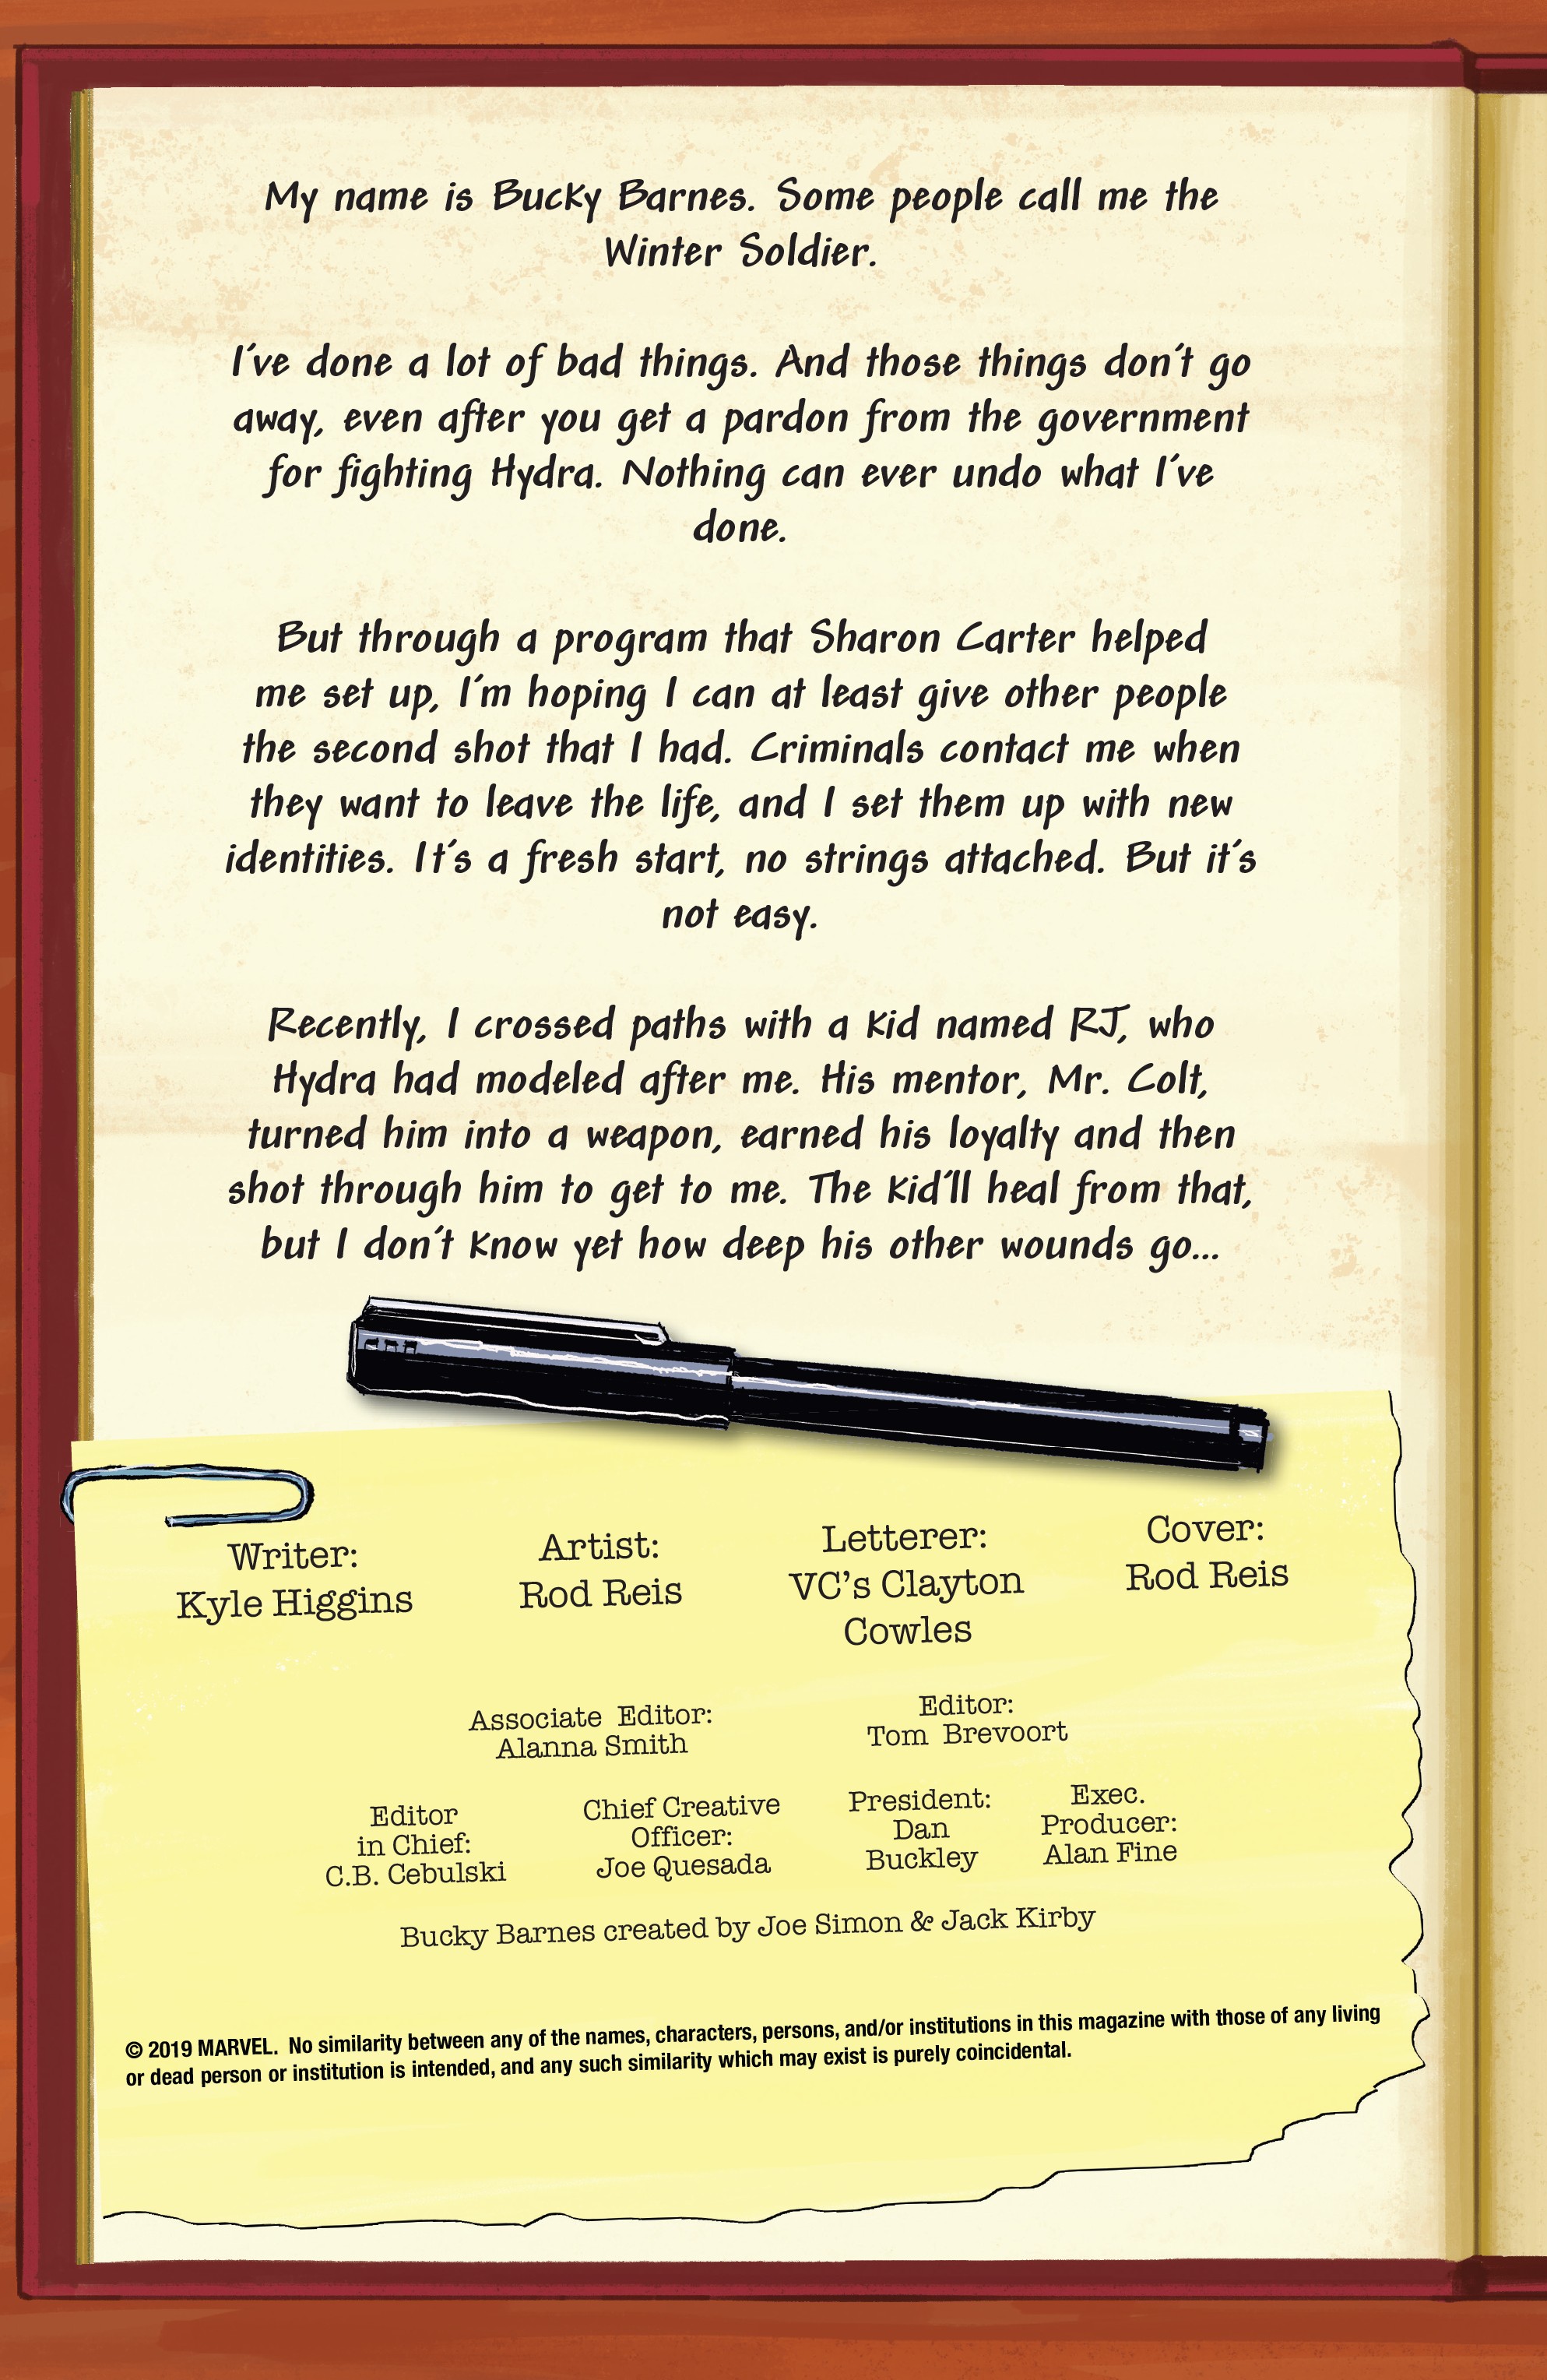 My name is Bucky Barnes. Some people call me the
Winter Soldier.
I've done a lot of bad things. And those things don't go
away, even after you get a pardon from the government
for fighting Hydra. Nothing can ever undo what I've
done.
But through a program that Sharon Carter helped
me set up, I'm hoping I can at least give other people
the second shot that I had. Criminals contact me when
they want to leave the life, and I set them up with new
identities. It's a fresh start, no strings attached. But it's
not easy.
Recently, I crossed paths with a kid named RJ, who
Hydra had modeled after me. His mentor, Mr. Colt,
turned him into a weapon, earned his loyalty and then
shot through him to get to me. The kid'll heal from that,
but I don't know yet how deep his other wounds go...
Writer:
Kyle Higgins
Artist:
Rod Reis
Letterer:
VC's Clayton
Cowles
Cover:
Rod Reis
Associate Editor:
Alanna Smith
Editor:
Tom Brevoort
Editor
in Chief:
C.B. Cebulski
Chief Creative
Officer:
Joe Quesada
President:
Dan
Buckley
Exec.
Producer:
Alan Fine
Bucky Barnes created by Joe Simon & Jack Kirby
© 2019 MARVEL. No similarity between any of the names, characters, persons, and/or institutions in this magazine with those of any living
or dead person or institution is intended, and any such similarity which may exist is purely coincidental.